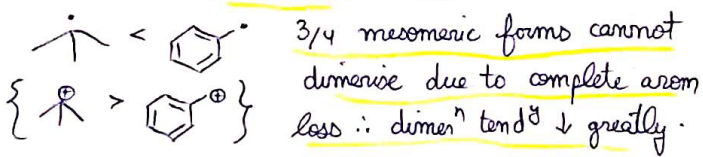 < 3/4 mesomeric forms cannot
dimerise due to complete arom
{ ⊕ > ⊕ } loss ∴ dimerⁿ tendʸ ↓ greatly.